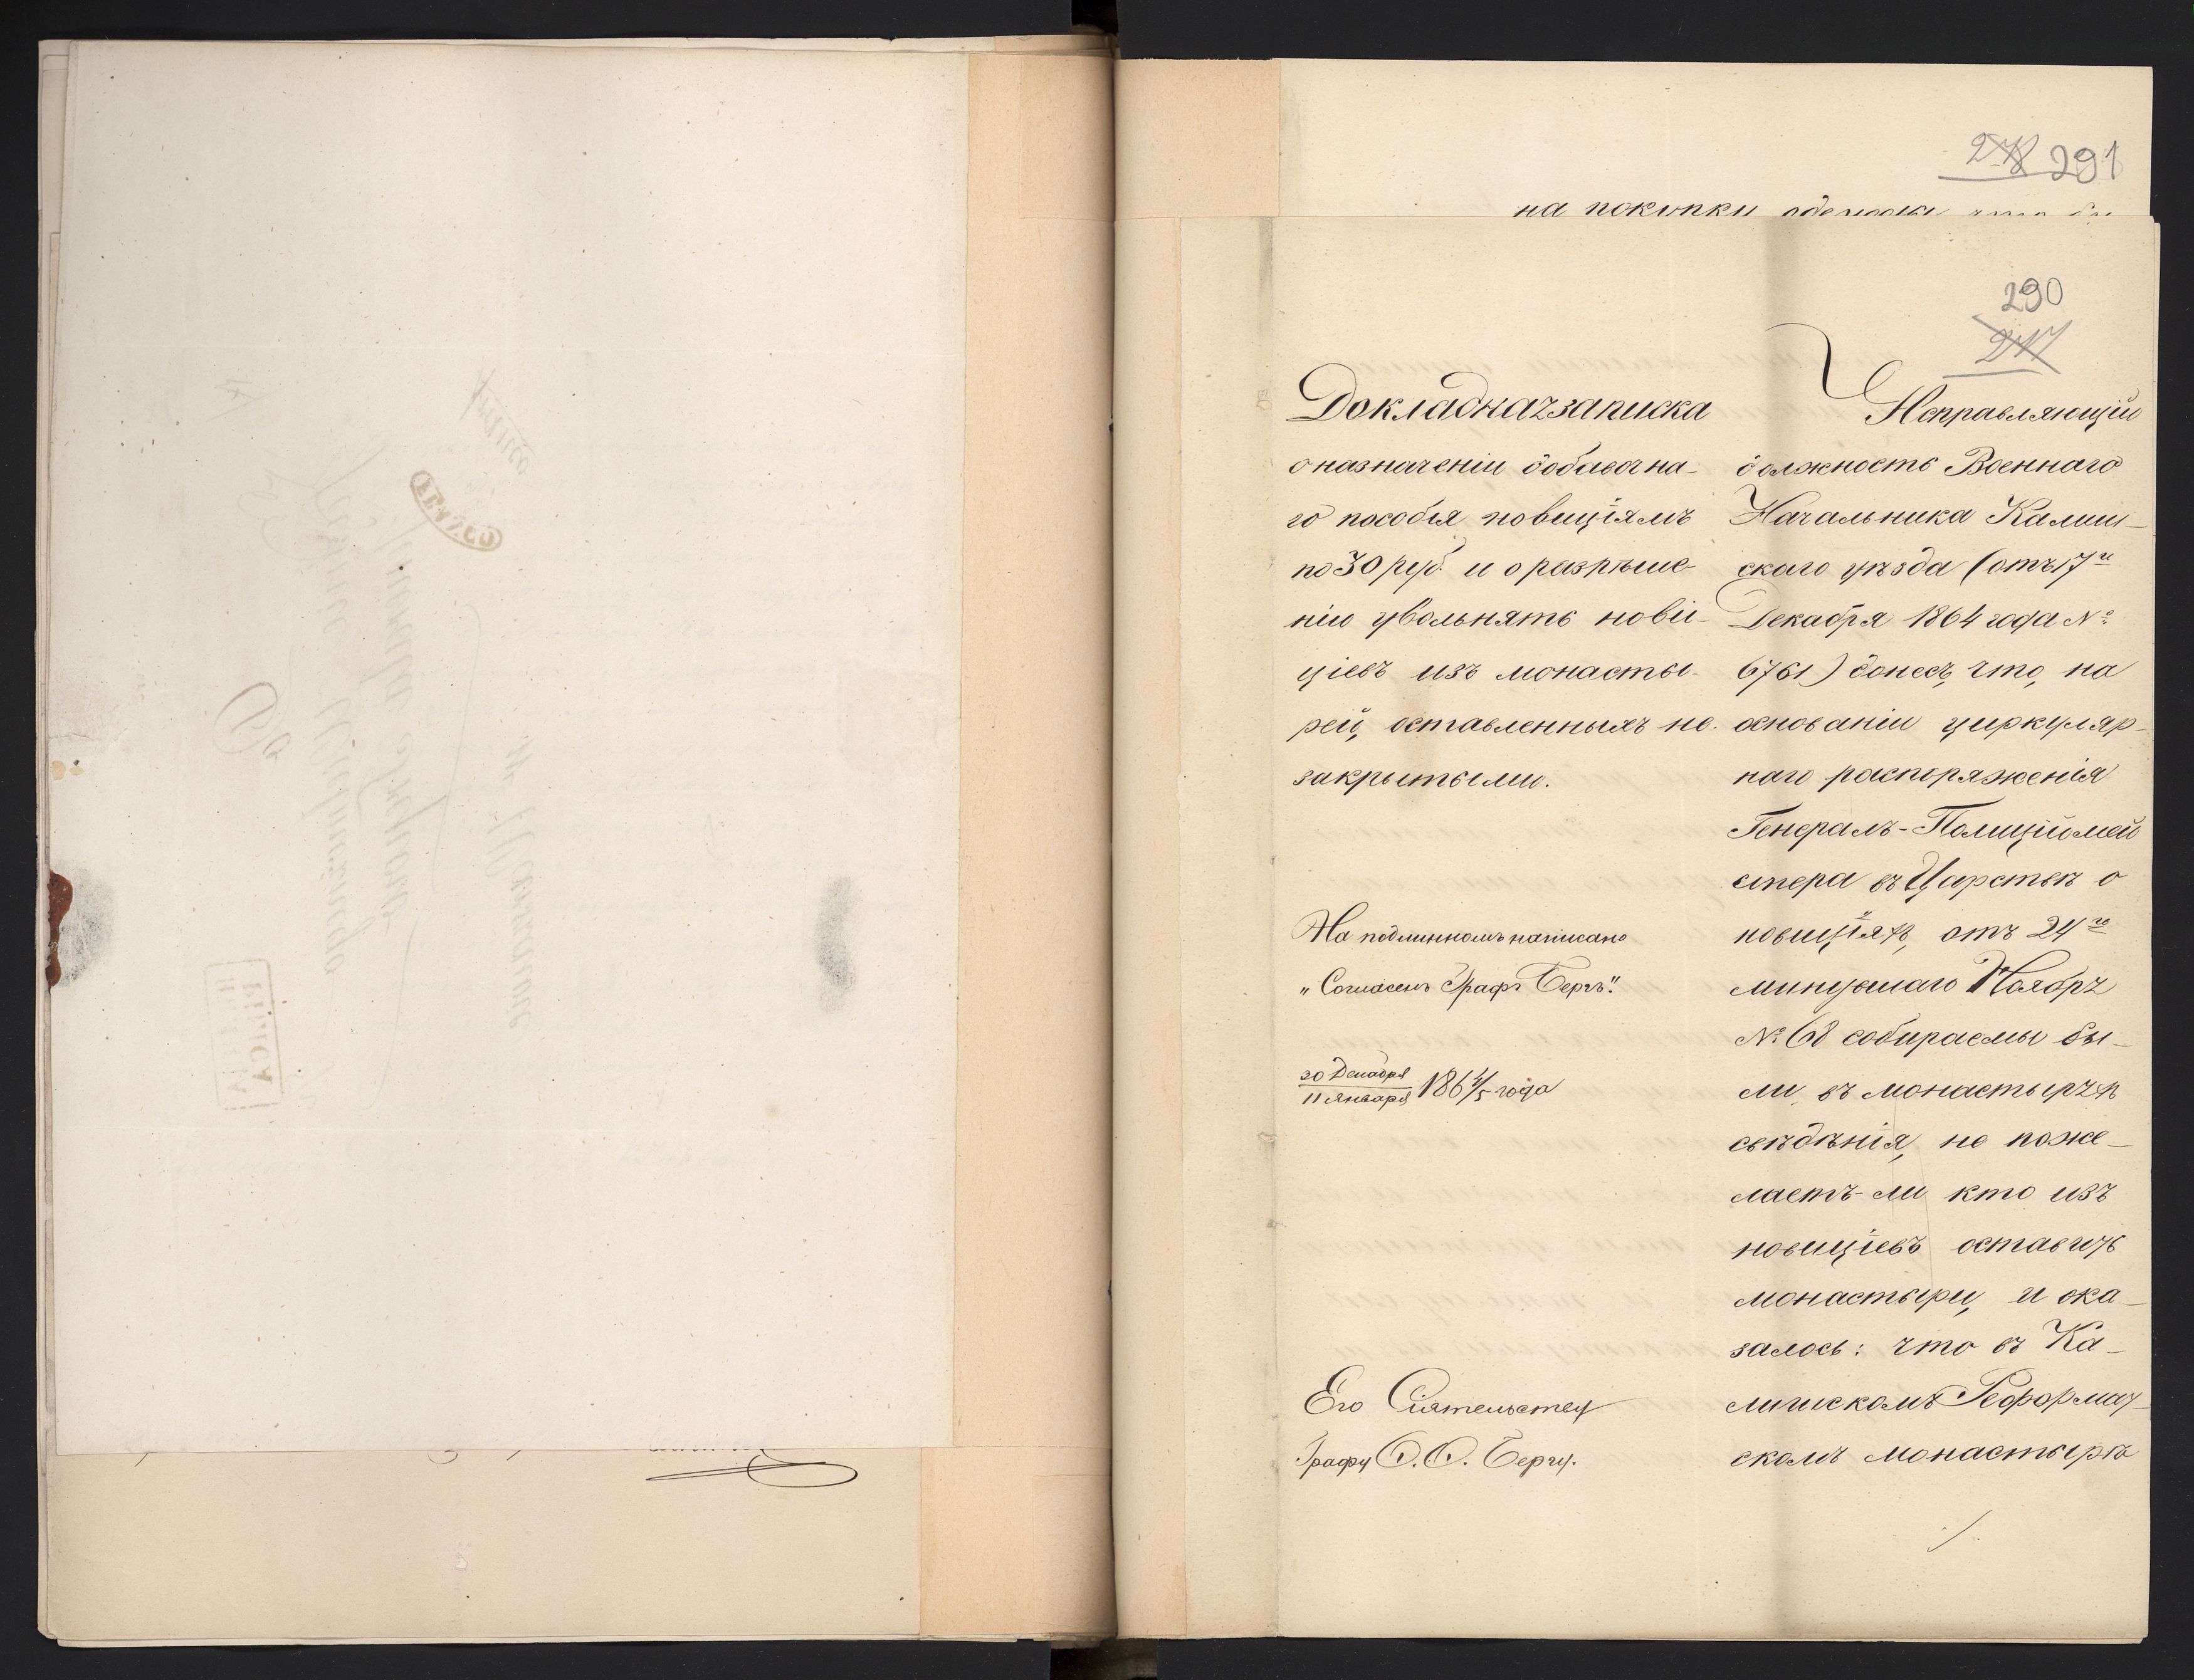 291
на покупки одежды
290
Докладная записка
о назначеніи добавочна-
го пособія новиціямъ
по 30 руб. и о разрѣше-
ніи увольнять нови-
ціевъ изъ монасты-
рей, оставленныхъ не-
закрытыми.
На подлинномъ написано
„Согласенъ Графъ Бергъ".
30 Декабря
11 Января 1864/5 года
Его Сіятельству
Графу Ѳ. Ѳ. Бергу.
Исправляющій
должность Военнаго
Начальника Калиш-
скаго уѣзда (отъ 17го
Декабря 1864 года №
6761) донесъ, что, на
основаніи циркуляр-
наго распоряженія
Генералъ-Полиціймей
стера въ Царствѣ о
новиціяхъ, отъ 24го
минувшаго Ноября
№ 68 собираемы бы-
ли въ монастыряхъ
свѣдѣнія, не поже-
лаетъ-ли кто изъ
новиціевъ оставить
монастыри, и ока-
залось: что въ Ка-
лишскомъ Реформат-
скомъ монастырѣ